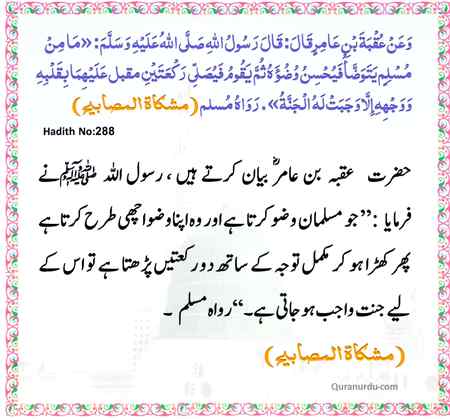 وَعَنْ عُقْبَةَ بْنِ عَامِرٍ قَالَ: قَالَ رَسُولُ اللهِ صَلَّى اللهُ عَلَيْهِ وَسَلَّمَ: «مَا مِنْ
مُسْلِمٍ يَتَوَضَّأُ فَيُحْسِنُ وُضُوْءَهُ ثُمَّ يَقُومُ فَيُصَلِّي رَكْعَتَيْنِ مقبل عَلَيْهِمَا بِقَلْبِهِ
وَوَجْهِهِ إِلَّا وَجَبَتْ لَهُ الْجَنَّةُ». رَوَاهُ مُسلم (مشکاة المصابیح)
Hadith No:288
حضرت عقبہ بن عامرؓ بیان کرتے ہیں ، رسول اللہ ﷺ نے
فرمایا :’’ جو مسلمان وضو کرتا ہے اور وہ اپنا وضو اچھی طرح کرتا ہے
پھر کھڑا ہو کر مکمل توجہ کے ساتھ دو رکعتیں پڑھتا ہے تو اس کے
لیے جنت واجب ہو جاتی ہے۔‘‘ رواہ مسلم ۔
(مشکاة المصابیح)
Quranurdu.com